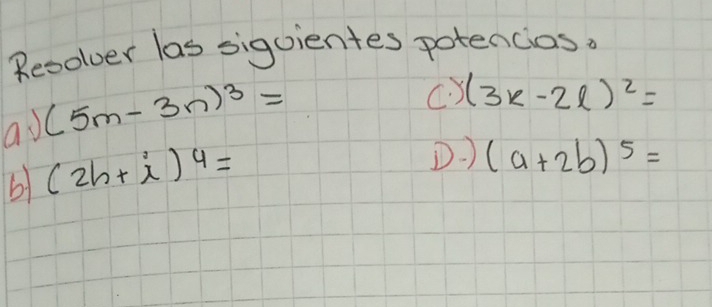 Resolver las siguientes potencias.
a.) (5m - 3n)³ =
b) (2h + i)⁴ =
C.) (3k - 2l)² =
D.) (a + 2b)⁵ =